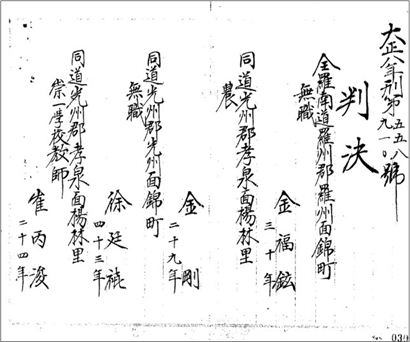 大正八年刑第五五八
九一〇號
判決
全羅南道羅州郡羅州面錦町
無職
金福鉉
三十年
同道光州郡孝泉面楊林里
農
金剛
二十九年
同道光州郡光州面錦町
無職
徐廷禧
四十三年
同道光州郡孝泉面楊林里
崇一學校教師
崔丙浚
二十四年
030